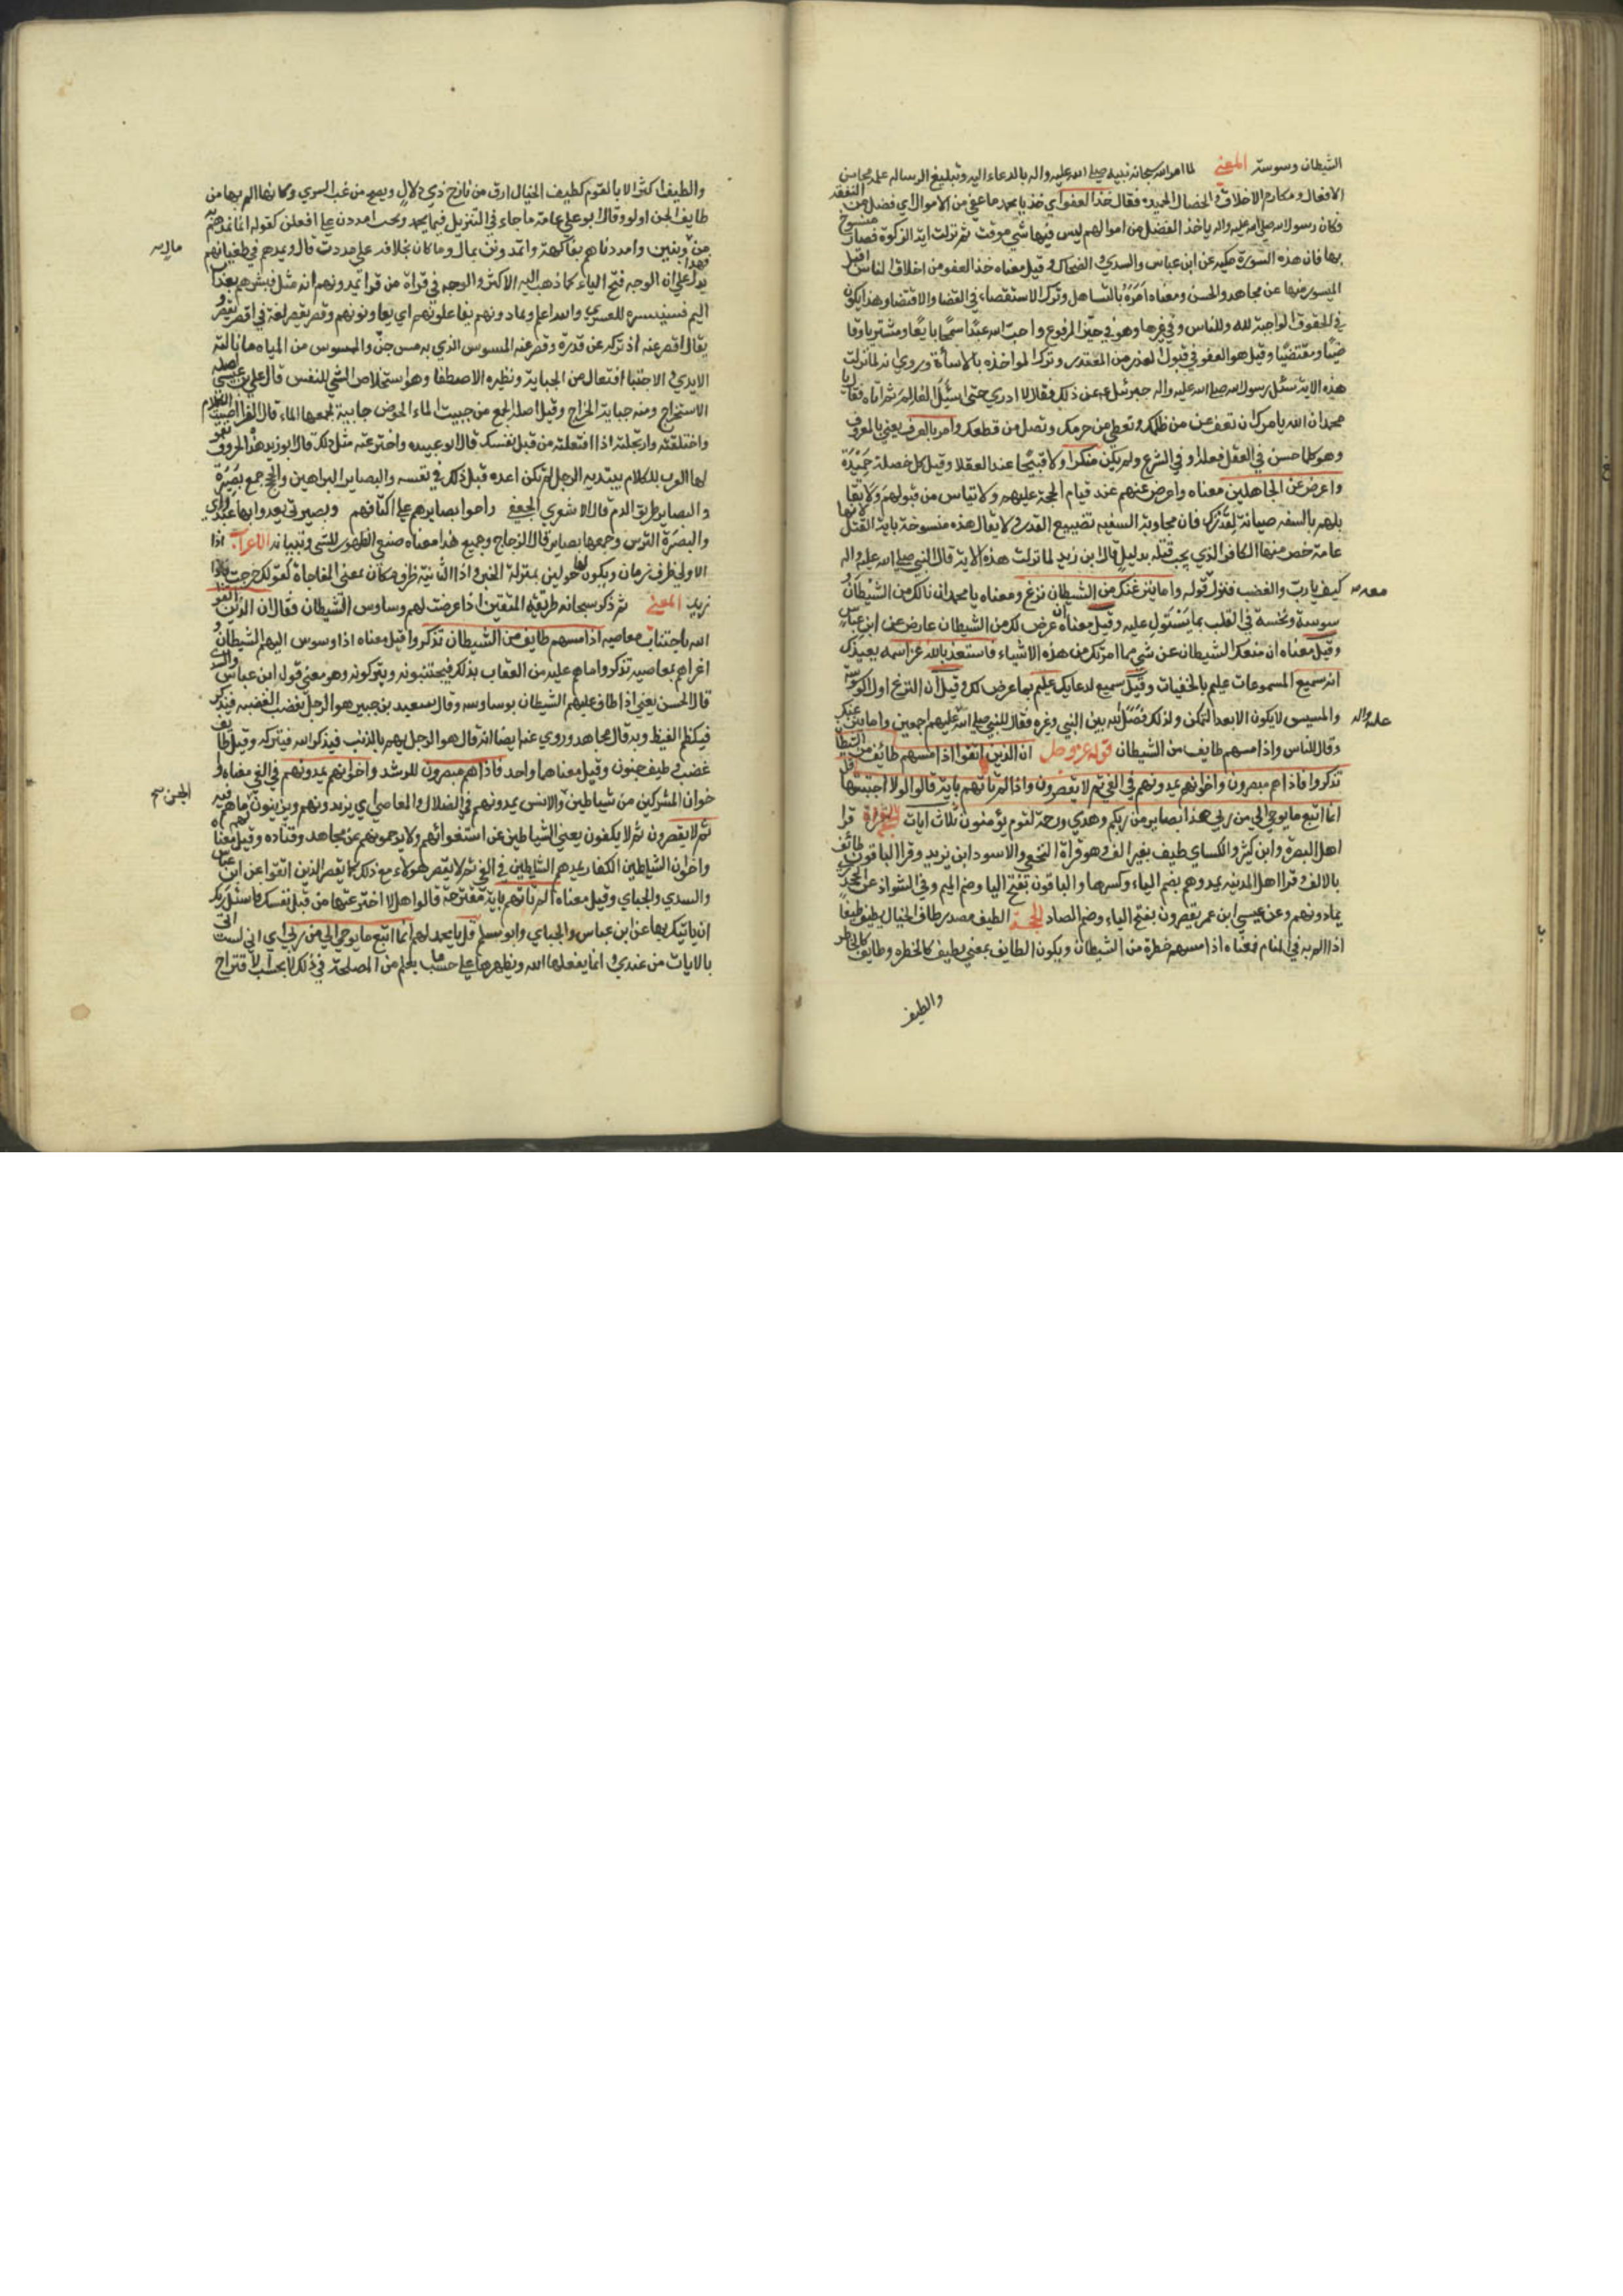 الشيطان وسوسته المعنى لما امر الله سبحانه نبيه صلى الله عليه واله بالدعاء اليه وتبليغ الرسالة علمه محاسن
الافعال ومكارم الاخلاق والخصال الحميدة فقال خذ العفو اي خذ يا محمد ما عفي من الاموال اي فضل من النفقة
فكان رسول الله صلى الله عليه واله ياخذ الفضل من اموالهم ليس فيها شي موقت ثم نزلت اية الزكوة فصار منسوخ
بها فان هذه السورة مكيه عن ابن عباس والسدي والضحاك وقيل معناه خذ العفو من اخلاق الناس واقبل
الميسور منها عن مجاهد والحسن ومعناه امره بالتساهل وترك الاستقصاء في القضا والاقتضا وهذا يكون
في الحقوق الواجبة لله وللناس وفي غيرها وهو في حيز المرفوع واحب الله عبدا سمحا بايعا ومشتريا وقا
ضيا ومقتضيا وقيل هو العفو في قبول العذر من المعتذر وترك المواخذه بالاساة وروي انه لما نزلت
هذه الاية سئل رسول الله صلى الله عليه واله جبرئيل ع عن ذلك فقال لا ادري حتى اسئل العالم ثم اتاه فقال يا
محمد ان الله يامرك ان تعفو عمن ظلمك وتعطي من حرمك وتصل من قطعك وامر بالعرف يعني بالمعروف
وهو كلما حسن في العقل فعله او في الشرع ولم يكن منكرا ولا قبيحا عند العقلا وقيل كل خصلة حميدة
واعرض عن الجاهلين معناه واعرض عنهم عند قيام الحجة عليهم ولاتياس من قبولهم ولا تقا
بلهم بالسفه صيانة لقدرك فان مجاوبة السفيه تضييع القدر ولا يقال هذه منسوخة باية القتال لانها
عامة خص منها الكافر الذي يجب قتله بدليل قال ابن زيد لما نزلت هذه الاية قال النبي صلى الله عليه واله
كيف يا رب والغضب فنزل قوله واما ينزغنك من الشيطان نزغ ومعناه يا محمد ان نالك من الشيطان و
سوسة ونخسة في القلب بما يسئول عليه وقيل معناه ان عرض لك من الشيطان عارض عن ابن عباس
وقيل معناه ان منعك الشيطان عن شي مما امرتك من هذه الاشياء فاستعذ بالله عز اسمه يعيذك
انه سميع المسموعات عليم بالخفيات وقيل سميع لدعايك عليم بما عرض لك وقيل ان النزغ اول الوسوسة
والمسيس لايكون الا بعد التمكن ولذلك فصل الله بين النبي وغيره فقال للنبي صلى الله عليهم اجمعين واما ينزغنك
وقال للناس واذا مسهم طايف من الشيطان قوله عز وجل ان الذين اتقوا اذا مسهم طائف من الشيطان
تذكروا فاذا هم مبصرون واخوانهم يمدونهم في الغي ثم لا يقصرون واذا لم تاتهم باية قالوا لولا اجتبيتها قل
انما اتبع ما يوحي الي من ربي هذا بصاير من ربكم وهدي ورحمة لقوم يؤمنون ثلاث ايات القراة قرا
اهل البصره وابن كثير والكساي طيف بغير الف وهو قراة النخعي والاسود ابن يزيد وقرا الباقون طائف
بالالف وقرا اهل المدينه يمدوهم بضم الياء وكسرها والباقون بفتح اليا وضم الميم وفي الشواذ عن الجحدري
يمادونهم وعن عيسى ابن عمر يقصرون بفتح الياء وضم الصاد الحجة الطيف مصدر طاف الخيال يطيف طيفا
اذا الم به في المنام فمعناه اذا مسهم خطرة من الشيطان ويكون الطايف بمعني يطيف كالخطره وطايف كالخاطر
والطيف
والطيف اكثر الا يا لقوم كطيف الخيال ارق من نازح ذي دلال ويصبح من غب السري وكانها الم بها من
طايف الجن اولق وقال ابو علي عامة ما جاء في التنزيل فيما يحمد ويحب امددت علي افعلت كقوله انما نمدهم به
من وبنين وامددناهم بفاكهة واتمدونن بمال وما كان بخلافه علي مددت قال ويمدهم في طغيانهم فهذا
يدل علي ان الوجه فتح الياء كما ذهب اليه الاكثر والوجه في قراة من قرا يمدونهم انه مثل فبشرهم بعذاب
اليم فسنيسره للعسري والله اعلم ويمادونهم يفاعلونهم اي يعاونونهم وقصر يقصر لغة في اقصر يقصر و
يقال اقصر عنه اذ تركه عن قدرة وقصر عنه الممسوس الذي به مس جن والممسوس من المياه ما نالته
الايدي والاجتبا افتعال من الجباية ونظيره الاصطفا وهو استخلاص الشي للنفس قال علي بن عيسي اصله
الاستخراج ومنه جباية الخراج وقيل اصله الجمع من جبيت الماء الحوض جابية لجمعها الماء قال الفرا اجتبيت الكلام
واختلقته وارتجلته اذا افتعلته من قبل نفسك قال ابو عبيده واخترعته مثل ذلك قال ابو زيد هذه الحروف تقو
لها العرب للكلام يبتديه الرجل لم يكن اعده قبل ذلك في نفسه والبصاير البراهين والحجج جمع بصيرة
والبصاير طريق الدم قال الاشعري الجعفي راحوا بصايرهم علي اكتافهم وبصيرتي يعدوا بها عتد واي
والبصيرة الترس وجمعها بصاير قال الزجاج وجميع هذا معناه صنع الظهور للشي وتبيانه الاعراب اذا
الاولي ظرف زمان ويكون لها حولين بمنزلة الخبر واذا الثانية ظرف مكان بمعني المفاجاة كقولك خرجت فاذا
زيد المعنى ثم ذكر سبحانه طريقة المتقين اذا عرضت لهم وساوس الشيطان فقال ان الذين اتقوا
الله باجتناب معاصيه اذا مسهم طايف من الشيطان تذكروا قيل معناه اذا وسوس اليهم الشيطان و
اغراهم بمعاصيه تذكروا ما هم عليه من العقاب بذلك فيجتنبونه ويتركونه وهو معني قول ابن عباس والسدي
قال الحسن يعني اذا طاف عليهم الشيطان بوساوسه وقال سعيد بن جبير هو الرجل يغضب الغضبه فيذكر
فيكظم الغيظ وبه قال مجاهد وروي عنه ايضا انه قال هو الرجل يهم بالذنب فيذكر الله فيتركه وقيل طايف
غضب وطيف جنون وقيل معناهما واحد فاذا هم مبصرون للرشد واخوانهم يمدونهم في الغي معناه وا
خوان المشركين من شياطين والانس يمدونهم في الضلال والمعاصي اي يزيدونهم ويزينون ما هم فيه
ثم لا يقصرون ثم لا يكفون يعني الشياطين عن استغوائهم ولا يرحمونهم عن مجاهد وقتاده وقيل معناه
واخوان الشياطين الكفار يمدهم الشياطين في الغي ثم لا يقصر هولاء مع ذلك كما يقصر الذين اتقوا عن ابن عباس
والسدي والجباي وقيل معناه الم تاتهم باية مقترحة قالوا هلا اخترعتها من قبل نفسك فاسئل ربك
ان ياتيك بها عن ابن عباس والجباي وابو مسلم قل يا محمد لهم انما اتبع ما يوحي الي من ربي اي اني لست اتي
بالايات من عندي وانما يفعلها الله ويظهرها علي حسب ما يعلم من المصلحة في ذلك لا بحسب الاقتراح